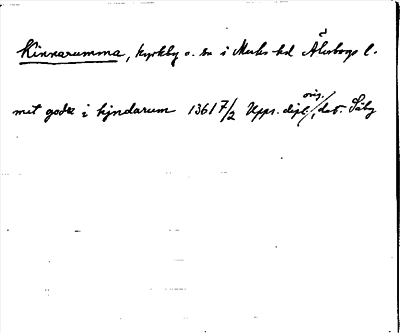 Kinnarumma, kyrkby o. sn i Marks hd Älvsborgs l.
orig.
mit godz i kyndarum 1361 7/2 Upps. dipl., dat. Säby